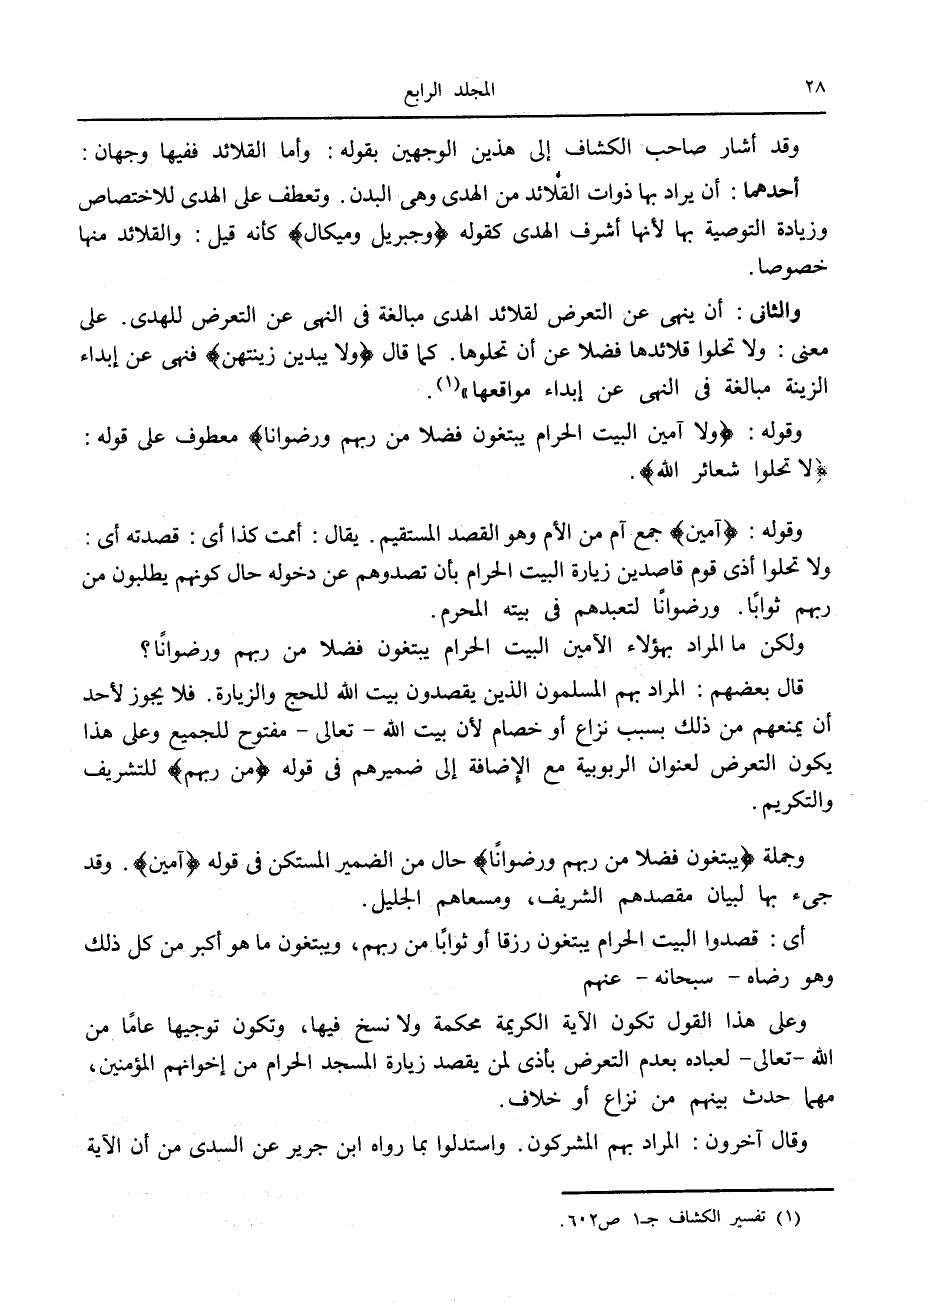 ٢٨
المجلد الرابع
وقد أشار صاحب الكشاف إلى هذين الوجهين بقوله : وأما القلائد ففيها وجهان :
أحدهما : أن يراد بها ذوات القلائد من الهدى وهى البدن. وتعطف على الهدى للاختصاص
وزيادة التوصية بها لأنها أشرف الهدى كقوله ﴿وجبريل وميكال﴾ كأنه قيل : والقلائد منها
خصوصا.
والثانى : أن ينهى عن التعرض لقلائد الهدى مبالغة فى النهى عن التعرض للهدى. على
معنى : ولا تحلوا قلائدها فضلا عن أن تحلوها. كما قال ﴿ولا يبدين زينتهن﴾ فنهى عن إبداء
الزينة مبالغة فى النهى عن إبداء مواقعها»(١).
وقوله : ﴿ولا آمين البيت الحرام يبتغون فضلا من ربهم ورضوانا﴾ معطوف على قوله :
﴿لا تحلوا شعائر الله﴾.
وقوله : ﴿آمين﴾ جمع آم من الأم وهو القصد المستقيم. يقال : أممت كذا أى : قصدته أى :
ولا تحلوا أذى قوم قاصدين زيارة البيت الحرام بأن تصدوهم عن دخوله حال كونهم يطلبون من
ربهم ثوابًا. ورضوانًا لتعبدهم فى بيته المحرم.
ولكن ما المراد بهؤلاء الآمين البيت الحرام يبتغون فضلا من ربهم ورضوانًا؟
قال بعضهم : المراد بهم المسلمون الذين يقصدون بيت الله للحج والزيارة. فلا يجوز لأحد
أن يمنعهم من ذلك بسبب نزاع أو خصام لأن بيت الله - تعالى - مفتوح للجميع وعلى هذا
يكون التعرض لعنوان الربوبية مع الإضافة إلى ضميرهم فى قوله ﴿من ربهم﴾ للتشريف
والتكريم.
وجملة ﴿يبتغون فضلا من ربهم ورضوانًا﴾ حال من الضمير المستكن فى قوله ﴿آمين﴾. وقد
جىء بها لبيان مقصدهم الشريف، ومسعاهم الجليل.
أى : قصدوا البيت الحرام يبتغون رزقا أو ثوابًا من ربهم، ويبتغون ما هو أكبر من كل ذلك
وهو رضاه - سبحانه - عنهم
وعلى هذا القول تكون الآية الكريمة محكمة ولا نسخ فيها، وتكون توجيها عامًا من
الله -تعالى- لعباده بعدم التعرض بأذى لمن يقصد زيارة المسجد الحرام من إخوانهم المؤمنين،
مهما حدث بينهم من نزاع أو خلاف.
وقال آخرون : المراد بهم المشركون. واستدلوا بما رواه ابن جرير عن السدى من أن الآية
(١) تفسير الكشاف جـ١ ص٦٠٢.